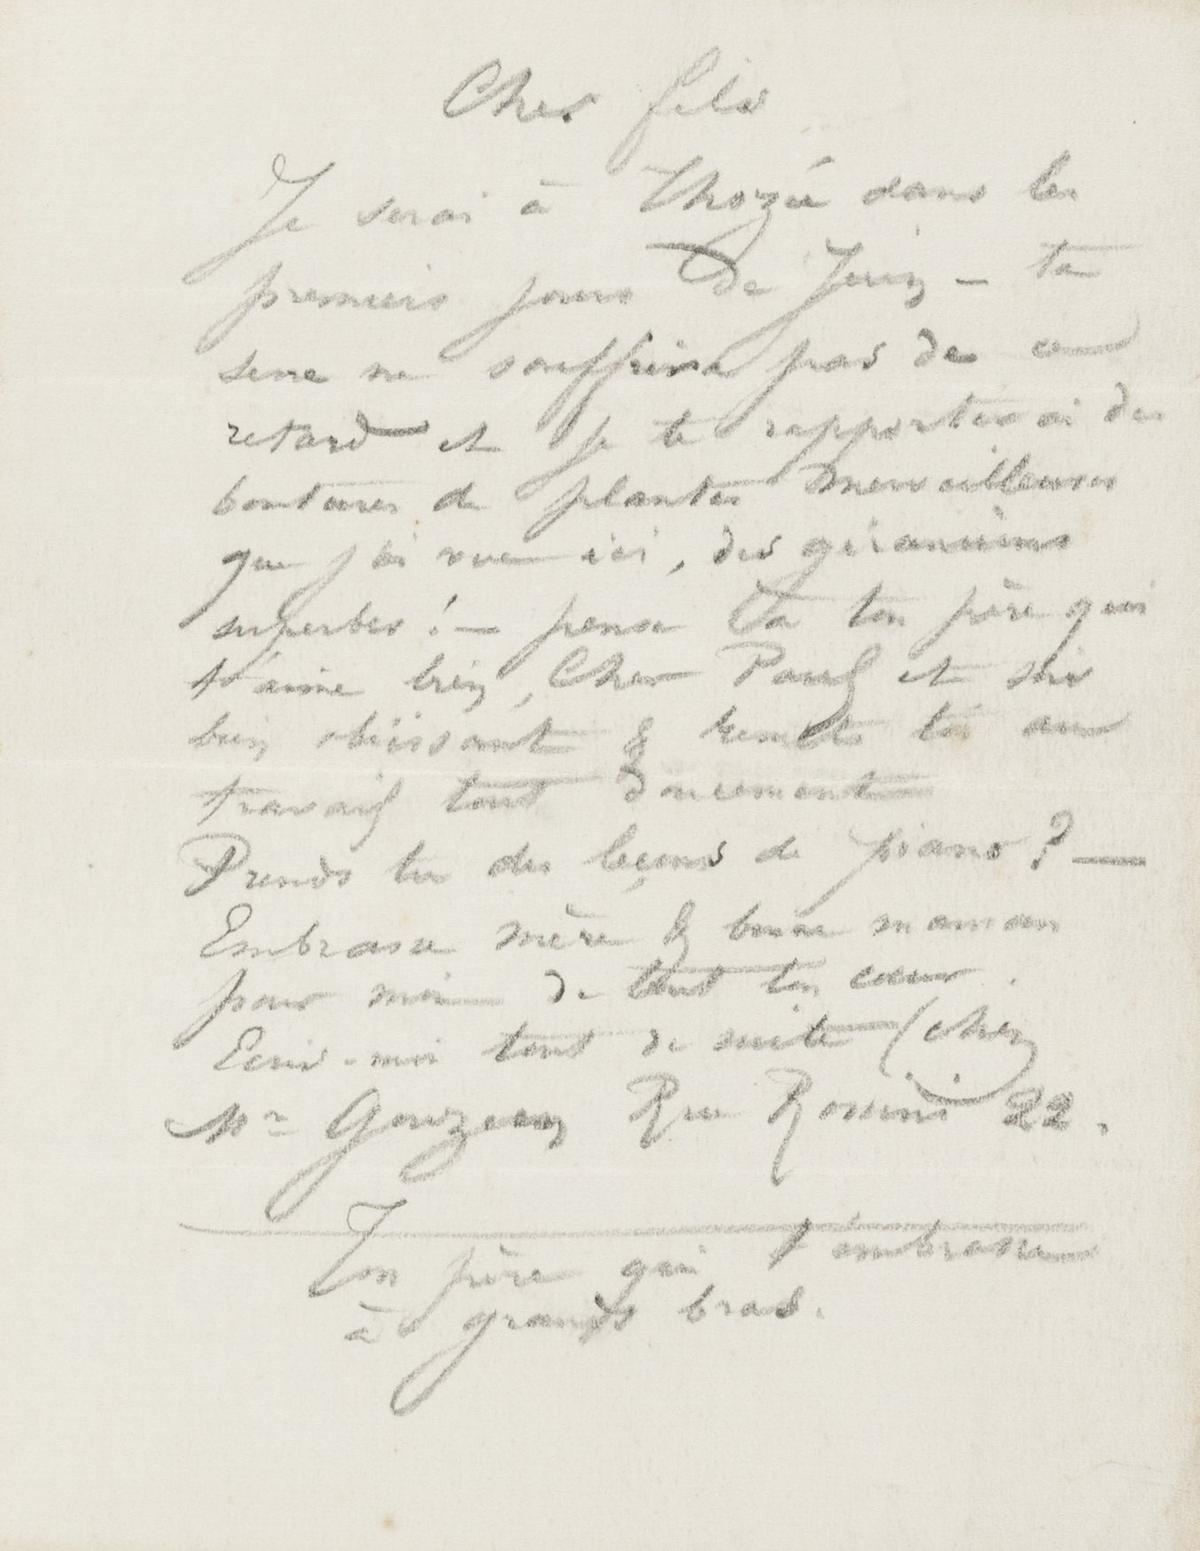 Cher fils
Je serai à Thozée dans les
premiers jours de Juin – ta
serre ne souffrira pas de ce
retard et je te rapporterai des
boutures de plantes merveilleuses
que j'ai vue ici, des géraniums
superbes ! — pense à ton père qui
t'aime bien, Cher Paul et sois
bien obéissant & remets toi au
travail tout doucement
Prends tu des leçons de piano ? —
Embrasse mère & bonne maman
pour moi de tout ton cœur.
Ecris-moi tout de suite (chez
Mr Gouzien Rue Rossini 22.
Ton père qui t'embrasse
à grands bras.